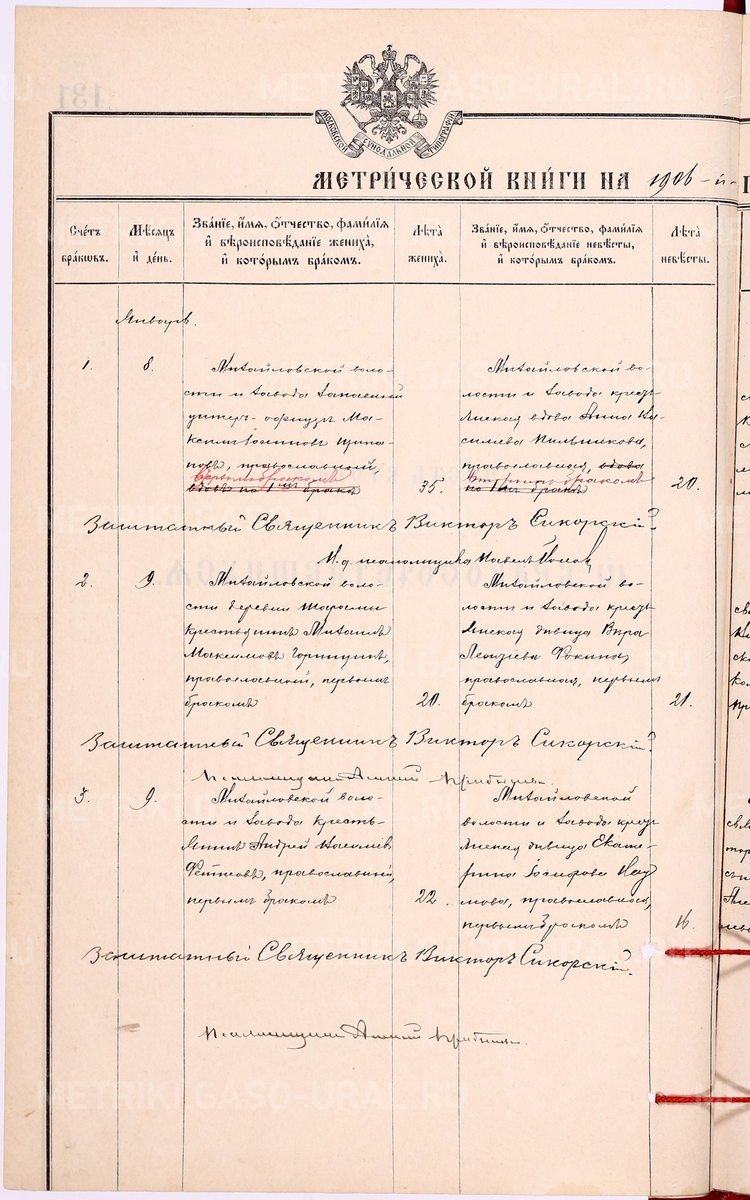 МОСКОВСКОЙ СѴНОДАЛЬНОЙ ТИПОГРАФІИ
МЕТРИ́ЧЕСКОЙ КНИ́ГИ НА 1906-й-
Сче́тъ бра́кѡвъ.
Мѣ́сяцъ и҆ де́нь.
Зва́нїе, и҆́мя, ѻ҆́тчество, фамі́лїя
и҆ вѣроисповѣ́данїе жениха̀,
и҆ кото́рымъ бра́комъ.
Лѣ́та жениха̀.
Зва́нїе, и҆́мя, ѻ҆́тчество, фамі́лїя
и҆ вѣроисповѣ́данїе невѣ́сты,
и҆ кото́рымъ бра́комъ.
Лѣ́та невѣ́сты.
Январь.
1. 8.
Михайловской воло-
сти и завода запасный
унтеръ-офицеръ Ма-
ксимъ Іоанновъ
православный,
первымъ бракомъ
вдовъ по 1мъ бракѣ
35.
Михайловской во-
лости и завода кресть-
янская вдова Анна Ва-
сильева Пильникова,
православная, вдова
вторымъ бракомъ
по 1мъ бракѣ
20.
Заштатный Священникъ Викторъ Сикорскій.
И. д. псаломщика Павелъ
2. 9.
Михайловской воло-
сти деревни
крестьянинъ Михаилъ
Максимовъ
православный, первымъ
бракомъ
20.
Михайловской во-
лости и завода кресть-
янская дѣвица Вѣра
Фокина,
православная, первымъ
бракомъ
21.
Заштатный Священникъ Викторъ Сикорскій.
Псаломщикъ
3. 9.
Михайловской воло-
сти и завода кресть-
янинъ Андрей
православный,
первымъ бракомъ
22.
Михайловской
волости и завода кресть-
янская дѣвица Екате-
рина Іосифова Нау-
мова, православная,
первымъ бракомъ
16.
Заштатный Священникъ Викторъ Сикорскій.
Псаломщикъ
METRIKI.GASO-URAL.RU